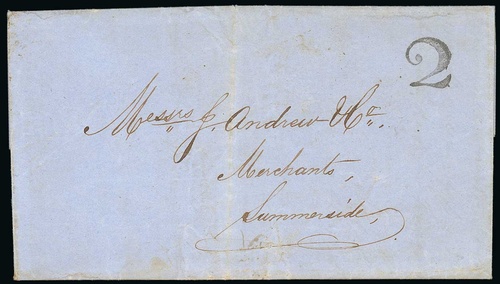 2
Messrs J. Andrew & Co.
Merchants,
Summerside,